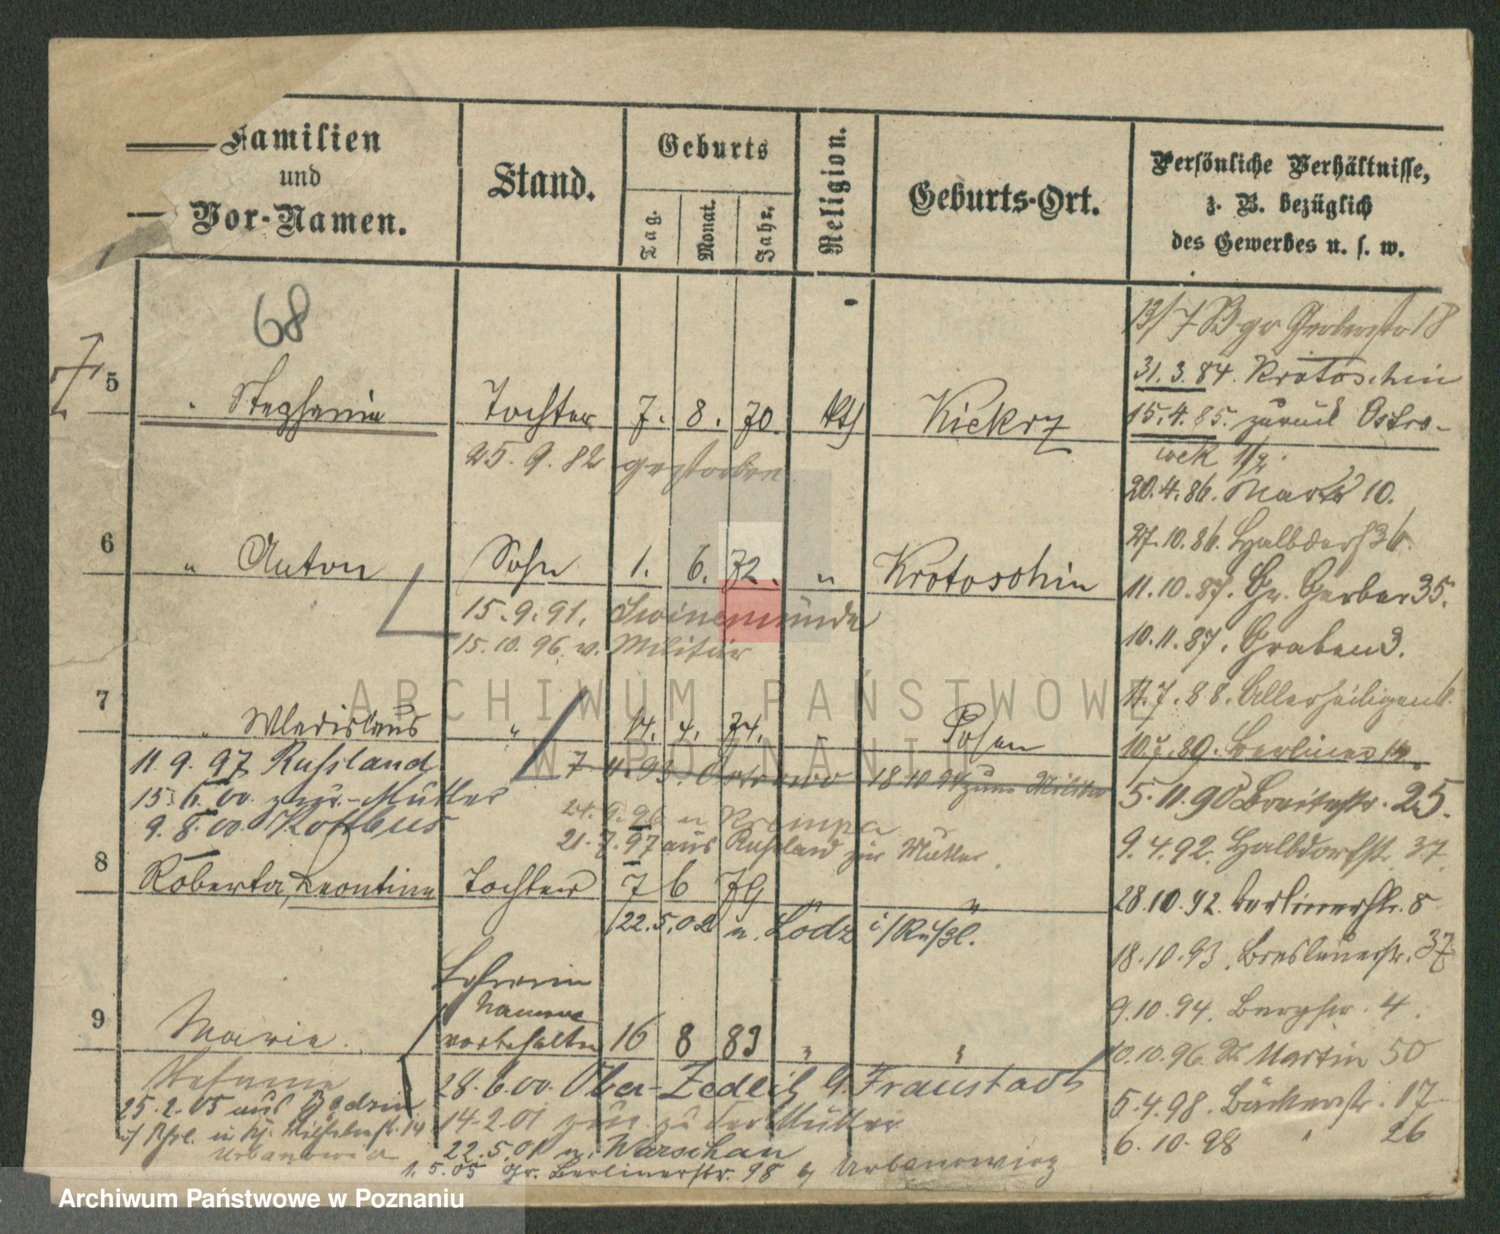 Familien
und
Vor-Namen.
Stand.
Geburts
Tag.
Monat.
Jahr.
Religion.
Geburts-Ort.
Persönliche Verhältnisse,
z. B. bezüglich
des Gewerbes u. s. w.
68
13/7 Bgr 18
31.3.84. Krotoschin
5 " Stephanie Tochter 7. 8. 70. kth Kiekrz
15.4.85. zurück Ostro-
wek
25.9.82 gestorben
20.4.86. Markt 10.
27.10.86. Halbdorf 36.
6 " Anton Sohn 1. 6. 72. " Krotoschin
11.10.87. Gr. Gerber 35.
15.9.91. Swinemünde
10.11.87. Graben 3.
15.10.96. v. Militär
11.7.88. Allerheiligen
7 " Wladislaus " 14. 4. 74. Posen
10.7.89. Berliner
11.9.97 Russland
7 4.93. Ostrowo 18.10.94 zum Militär
15.6.00. zur. Mutter
5.11.90 Breitestr. 25.
24.9.96 n Krempa
9.8.00. Kottbus
21.7.97 aus Russland zur Mutter.
9.4.92. Halbdorfstr. 37
8 Roberta, Leontine Tochter 7 6 79 "
28.10.92. Berlinerstr. 8
22.5.02 n. Lodz i/Rußl.
18.10.93. Breslauerstr. 37
9 Marie. 16 8 83 " "
Namens
vorbehalten
9.10.94. Bergstr. 4.
10.10.96. St. Martin 50
Stefanie
28.6.00. Ober-Zedlitz b. Fraustadt
25.2.05 aus Bendzin
14.2.01 zur. zu der Mutter
5.4.98. Bäckerstr. 17
22.5.01 n. Warschau
6.10.98 " 26
Urbanowicz
1.5.05 Gr. Berlinerstr. 98 b/ Urbanowicz
ARCHIWUM PAŃSTWOWE
W POZNANIU
Archiwum Państwowe w Poznaniu